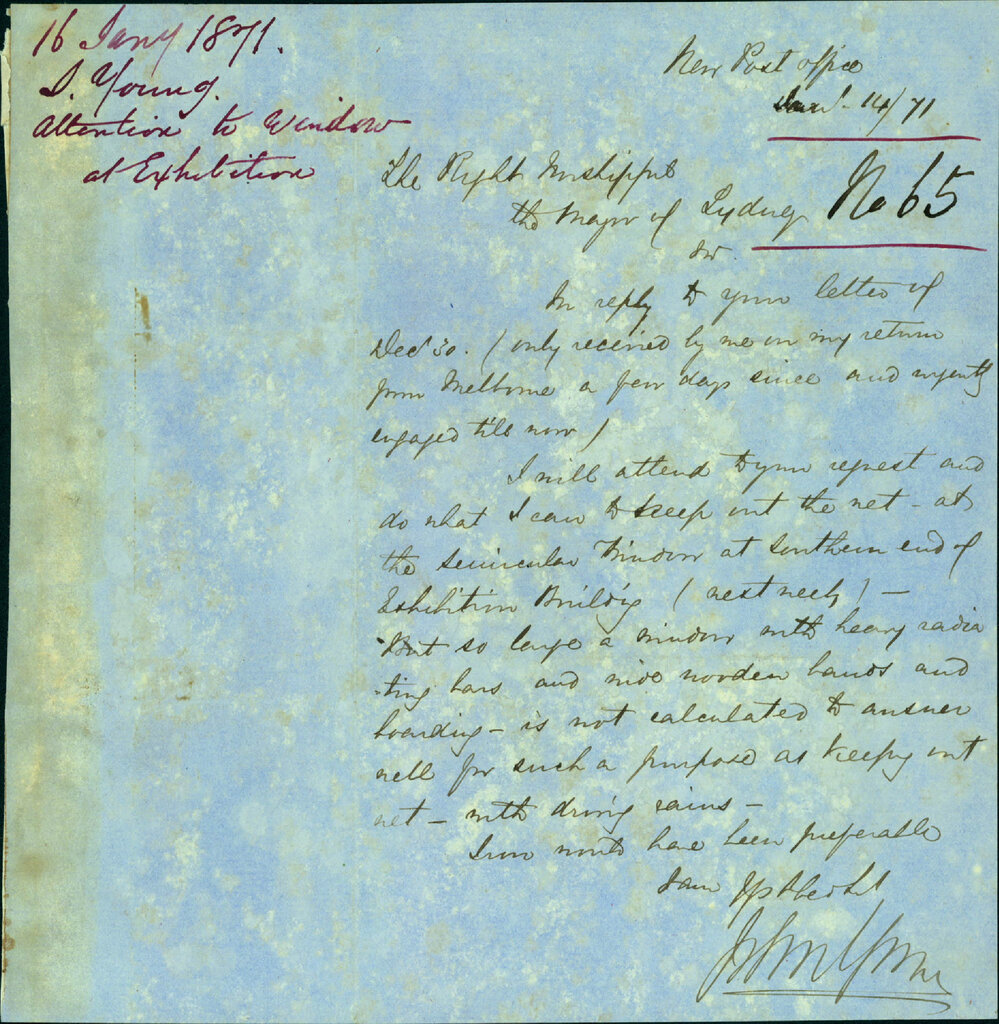 16 Jany 1871.
J. Young.
Attention to Window
at Exhibition
New Post office
Jany 14/71
No 65
The Right Worshipful
the Mayor of Sydney
Sir
In reply to your letter of
Decr 30. (only received by me on my return
from Melborne a few days since and urgently
engaged till now)
I will attend to your request and
do what I can to keep out the wet - at
the semicircular Window at Southern end of
Exhibition Building (next week) -
But so large a window with heavy radia
ting bars and wide wooden bands and
boarding - is not calculated to answer
well for such a purpose as keeping out
wet - with driving rains -
Iron would have been preferable
I am
John Young